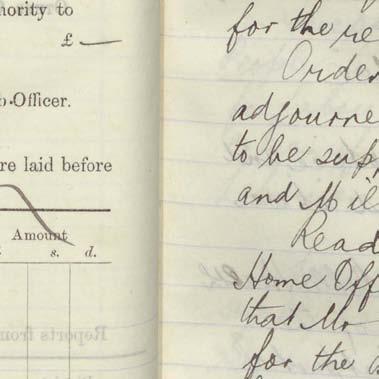 hority to
£ —
Officer.
re laid before
Amount
s. d.
for the re
Order
adjourne
to be supp
and Mil
Read
Home Off
that Mr
for the